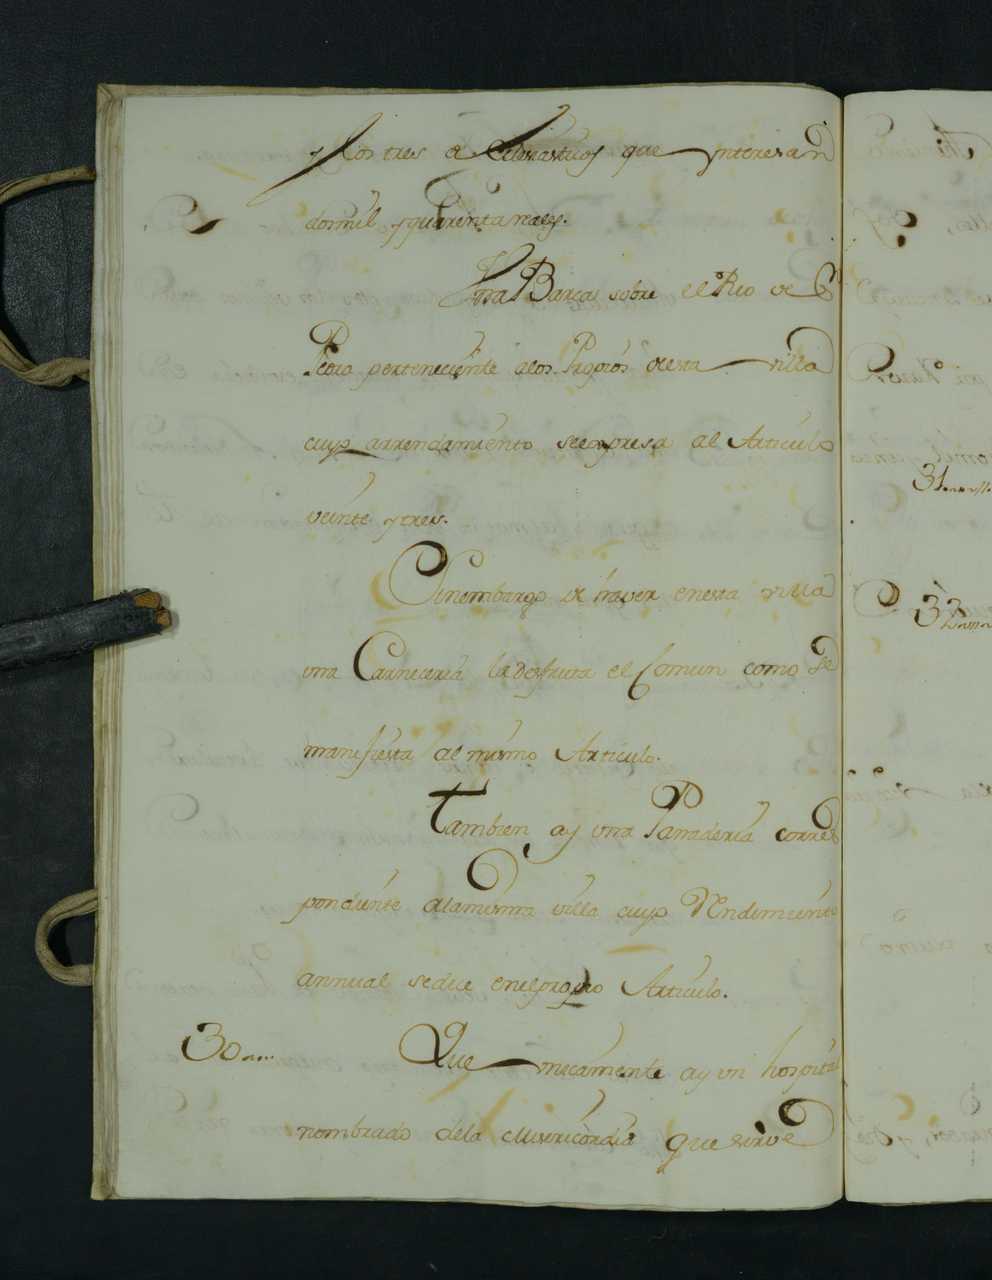 y los tres a Eclesiasticos que Ynteresan
dosmil y quarenta reales.
Una Barca sobre el Rio de S.
Pedro perteneciente alos Propios desta villa
cuyo arrendamiento se expresa al Articulo
veinte y tres.
Sinembargo de haver enesta villa
una Carniceria la desfruta el Comun como se
manifiesta al mismo Articulo.
Tambien ay una Panaderia corres
pondiente alamisma villa cuyo Rendimiento
annual sedice enelpropio Articulo.
30 Que unicamente ay un hospital
nombrado dela Misericordia que sirve
31
32